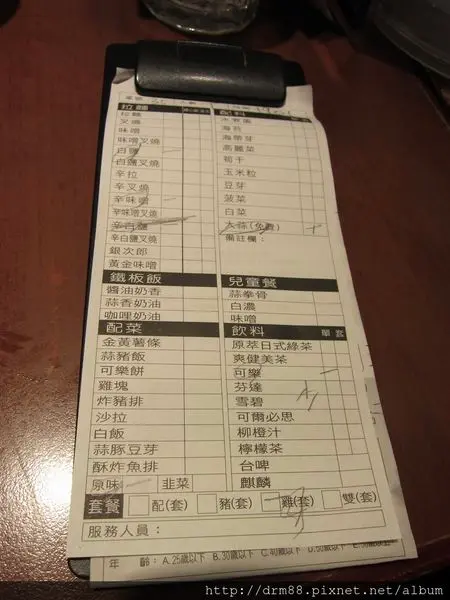 拉麵
拉麵
叉燒
味噌
味噌叉燒
白鹽
白鹽叉燒
辛拉
辛叉燒
辛味噌
辛味噌叉燒
辛白鹽
辛白鹽叉燒
銀次郎
黃金味噌
配料
海苔
海帶芽
高麗菜
筍干
玉米粒
豆芽
菠菜
白菜
大蒜(免費)
備註欄：
鐵板飯
醬油奶香
蒜香奶油
咖哩奶油
兒童餐
蒜拳骨
白濃
味噌
配菜
金黃薯條
蒜豬飯
可樂餅
雞塊
炸豬排
沙拉
白飯
蒜豚豆芽
酥炸魚排
原味 韭菜
飲料 單 套
原萃日式綠茶
爽健美茶
可樂
芬達
雪碧
可爾必思
柳橙汁
檸檬茶
台啤
麒麟
套餐 配(套) 豬(套) 雞(套) 雙(套)
服務人員：
年 齡：A.25歲以下 B.30歲以下 C.40歲以下 D.50歲以下
http://drm88.pixnet.net/album